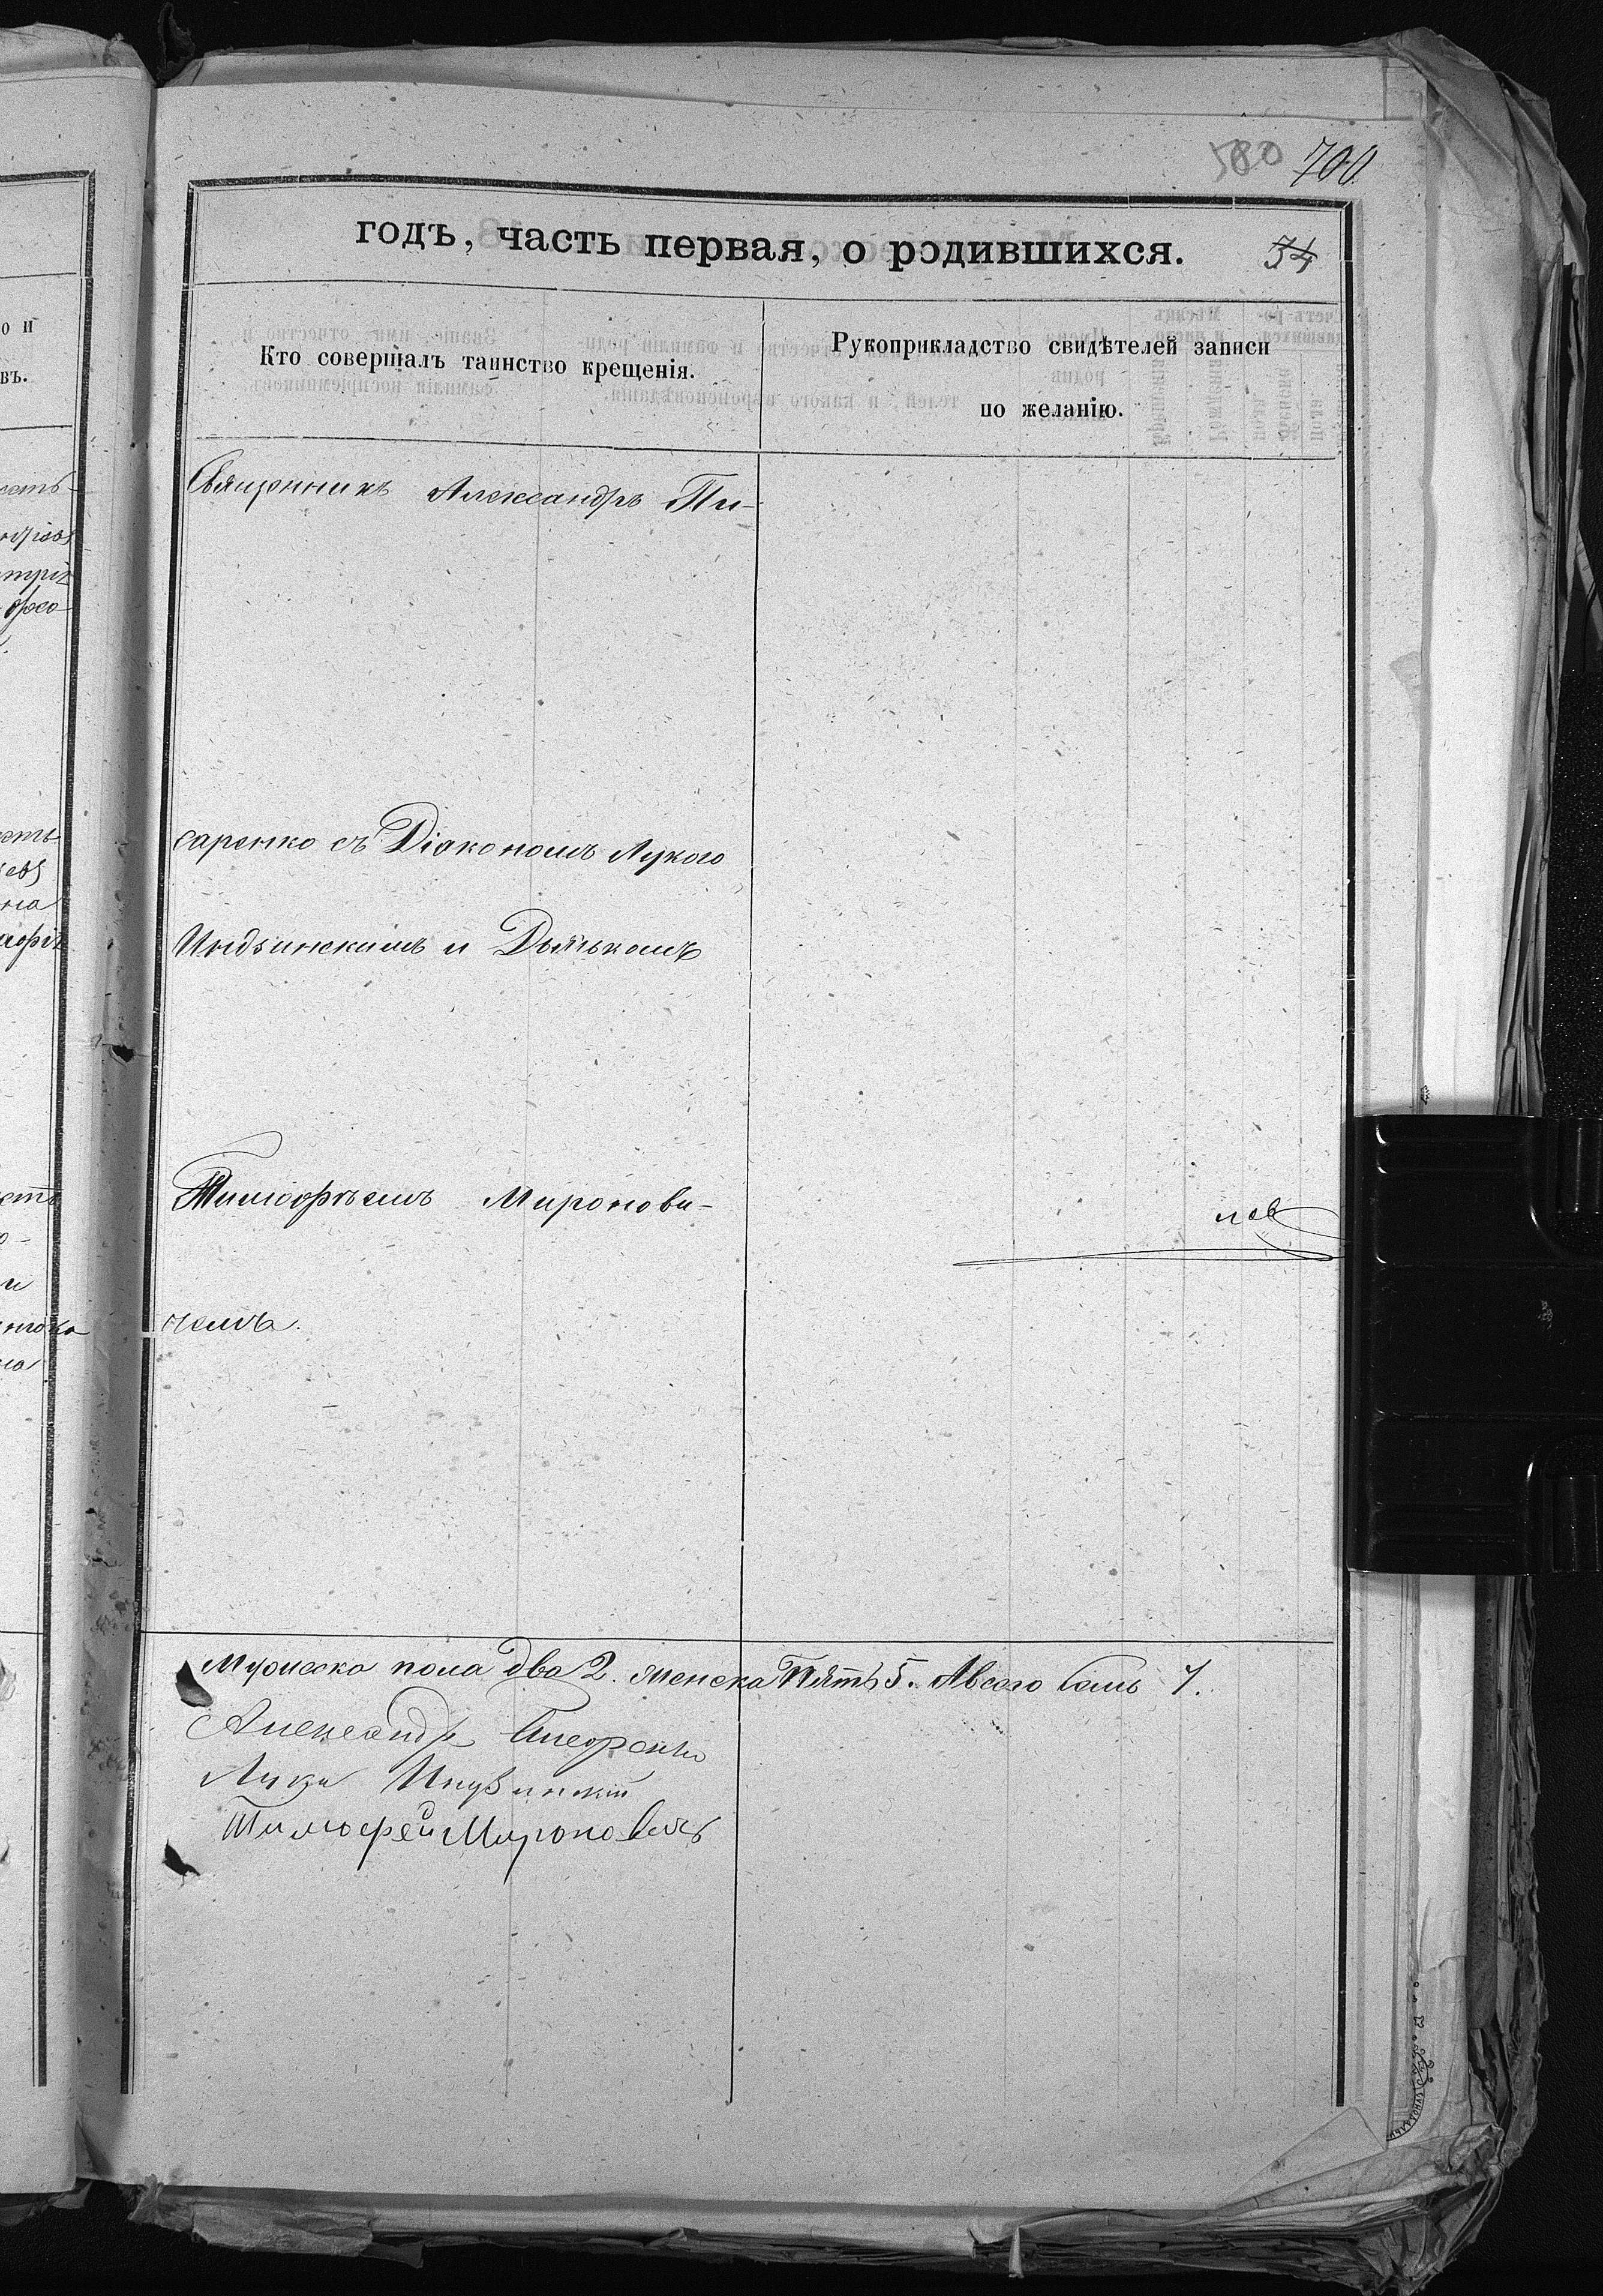 580 700
годъ, часть первая, о родившихся. 34
Кто совершалъ таинство крещенія.
Рукоприкладство свидѣтелей записи
по желанію.
Священникъ Александръ Пи-
саренко съ Діакономъ Лукою
Индзинскимъ и Дьячкомъ
Тимофѣемъ Миронови-
чемъ.
Мужеска пола два 2. Женска Пять 5. Авсего Семь 7.
Александръ Писаренко
Лука Индзинскій
Тимофей Мироновичъ